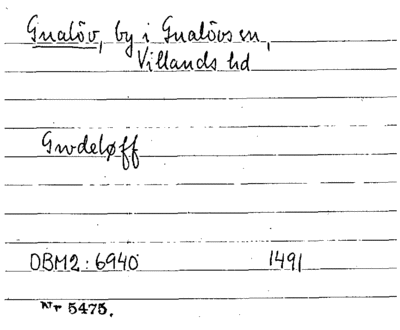 Gualöv, by i Gualövs sn,
Villands hd
Gwdeløff
DBM2:6940 1491
Nr 5475.